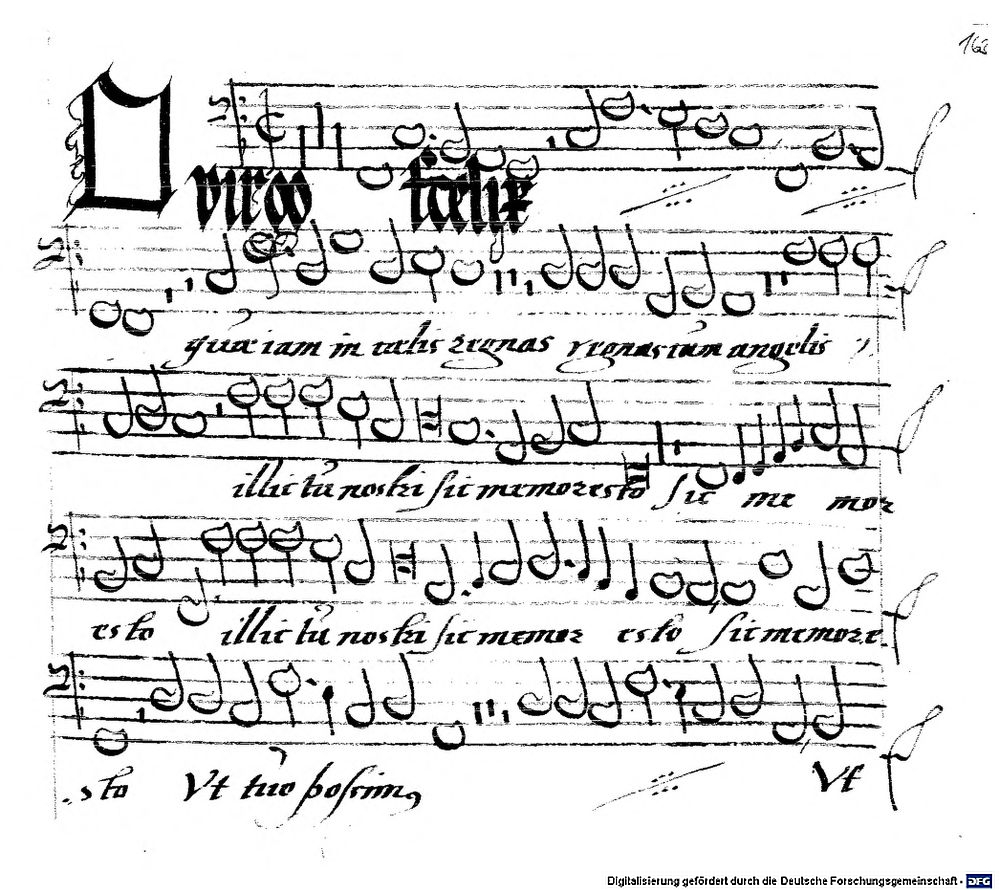 168
O
virgo felix
quæ iam in cœlis regnas regnas cum angelis
illic tu nostri sic memor esto sic me mor
esto illic tu nostri sic memor esto sic memor e
sto Vt tuo possim9 Vt
Digitalisierung gefördert durch die Deutsche Forschungsgemeinschaft - DFG